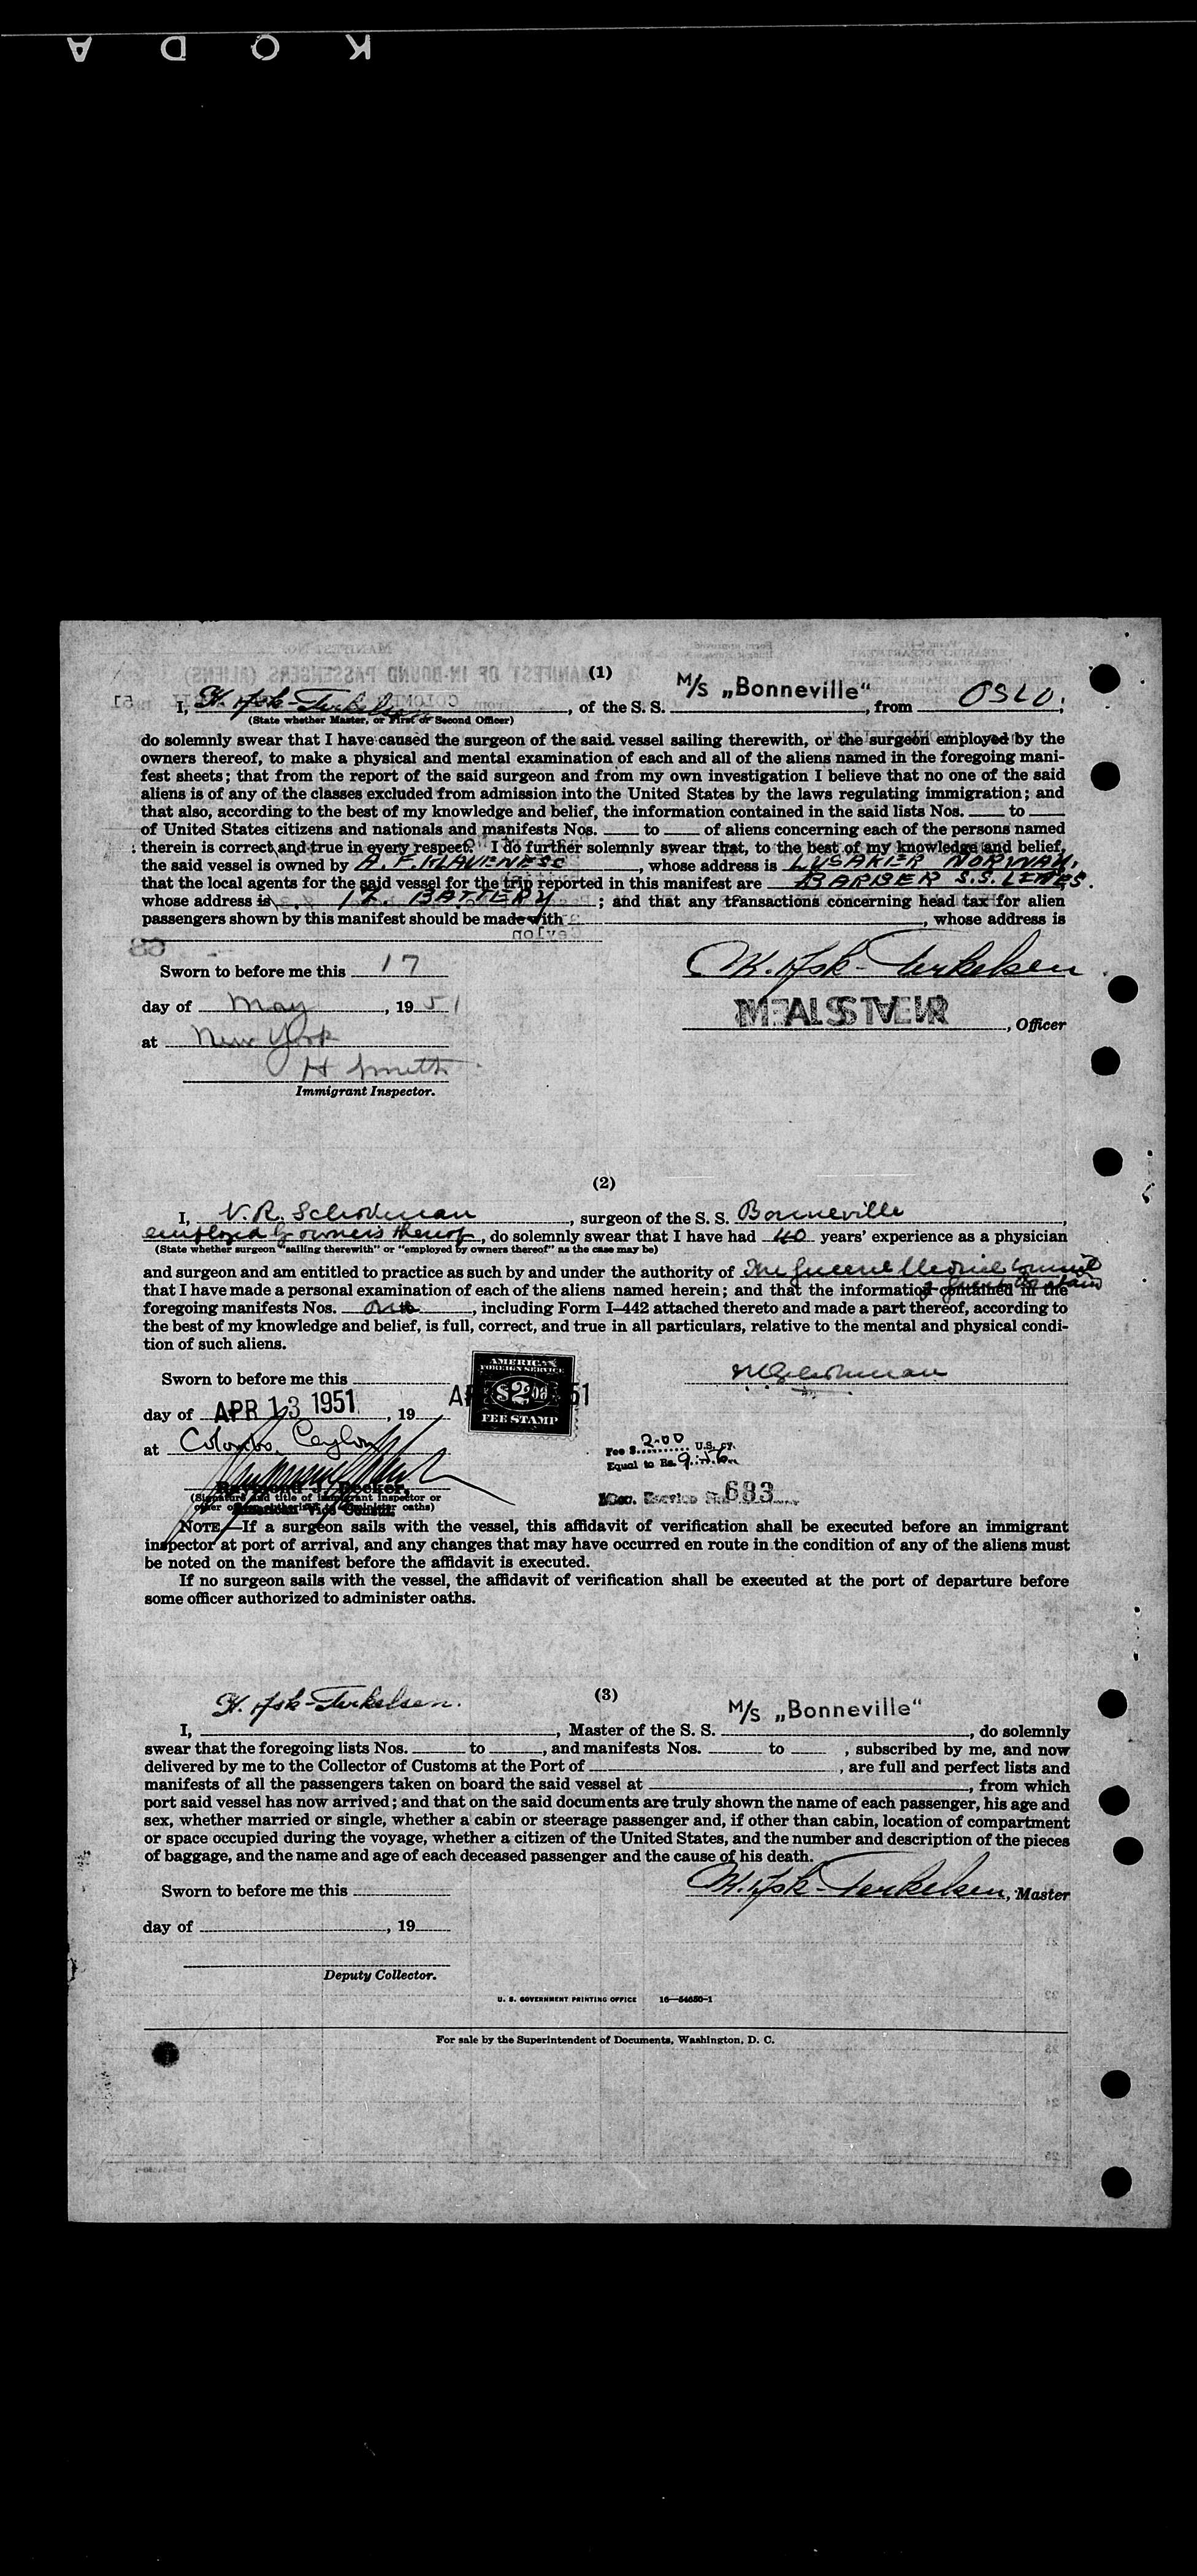 KODA
(1)
I, H. Ask-Terkelsen, of the S. S. M/S „Bonneville“, from OSLO,
(State whether Master, or First or Second Officer)
do solemnly swear that I have caused the surgeon of the said vessel sailing therewith, or the surgeon employed by the
owners thereof, to make a physical and mental examination of each and all of the aliens named in the foregoing mani-
fest sheets; that from the report of the said surgeon and from my own investigation I believe that no one of the said
aliens is of any of the classes excluded from admission into the United States by the laws regulating immigration; and
that also, according to the best of my knowledge and belief, the information contained in the said lists Nos. ___ to ___
of United States citizens and nationals and manifests Nos. ___ to ___ of aliens concerning each of the persons named
therein is correct and true in every respect. I do further solemnly swear that, to the best of my knowledge and belief,
the said vessel is owned by A. F. KLAVENESS, whose address is LYSAKER NORWAY.
that the local agents for the said vessel for the trip reported in this manifest are BARBER S.S. LINES.
whose address is 17. BATTERY; and that any transactions concerning head tax for alien
passengers shown by this manifest should be made with ___, whose address is
Sworn to before me this 17 H. Ask-Terkelsen
day of May, 1951 MASTER, Officer
at New York
H Smith
Immigrant Inspector.
(2)
I, V. R. Schokman, surgeon of the S. S. Bonneville,
employed by owners thereof, do solemnly swear that I have had 40 years' experience as a physician
(State whether surgeon "sailing therewith" or "employed by owners thereof" as the case may be)
and surgeon and am entitled to practice as such by and under the authority of The General Medical Council
of Great Britain
that I have made a personal examination of each of the aliens named herein; and that the information contained in the
foregoing manifests Nos. one, including Form I-442 attached thereto and made a part thereof, according to
the best of my knowledge and belief, is full, correct, and true in all particulars, relative to the mental and physical condi-
tion of such aliens.
Sworn to before me this ___
AMERICAN
FOREIGN SERVICE
$2.00
FEE STAMP
day of APR 13 1951, 19___
at Colombo, Ceylon
Fee $ 2.00 U.S. cy.
Equal to Rs. 9.56
Raymond J. Becker,
American Vice Consul
(Signature and title of immigrant inspector or
other officer authorized to administer oaths)
Service No. 683
NOTE.—If a surgeon sails with the vessel, this affidavit of verification shall be executed before an immigrant
inspector at port of arrival, and any changes that may have occurred en route in the condition of any of the aliens must
be noted on the manifest before the affidavit is executed.
If no surgeon sails with the vessel, the affidavit of verification shall be executed at the port of departure before
some officer authorized to administer oaths.
(3)
I, H. Ask-Terkelsen., Master of the S. S. M/S „Bonneville“, do solemnly
swear that the foregoing lists Nos. ___ to ___, and manifests Nos. ___ to ___, subscribed by me, and now
delivered by me to the Collector of Customs at the Port of ___, are full and perfect lists and
manifests of all the passengers taken on board the said vessel at ___, from which
port said vessel has now arrived; and that on the said documents are truly shown the name of each passenger, his age and
sex, whether married or single, whether a cabin or steerage passenger and, if other than cabin, location of compartment
or space occupied during the voyage, whether a citizen of the United States, and the number and description of the pieces
of baggage, and the name and age of each deceased passenger and the cause of his death.
Sworn to before me this ___ H. Ask-Terkelsen, Master
day of ___, 19___
Deputy Collector.
U. S. GOVERNMENT PRINTING OFFICE 16—54650-1
For sale by the Superintendent of Documents, Washington, D. C.